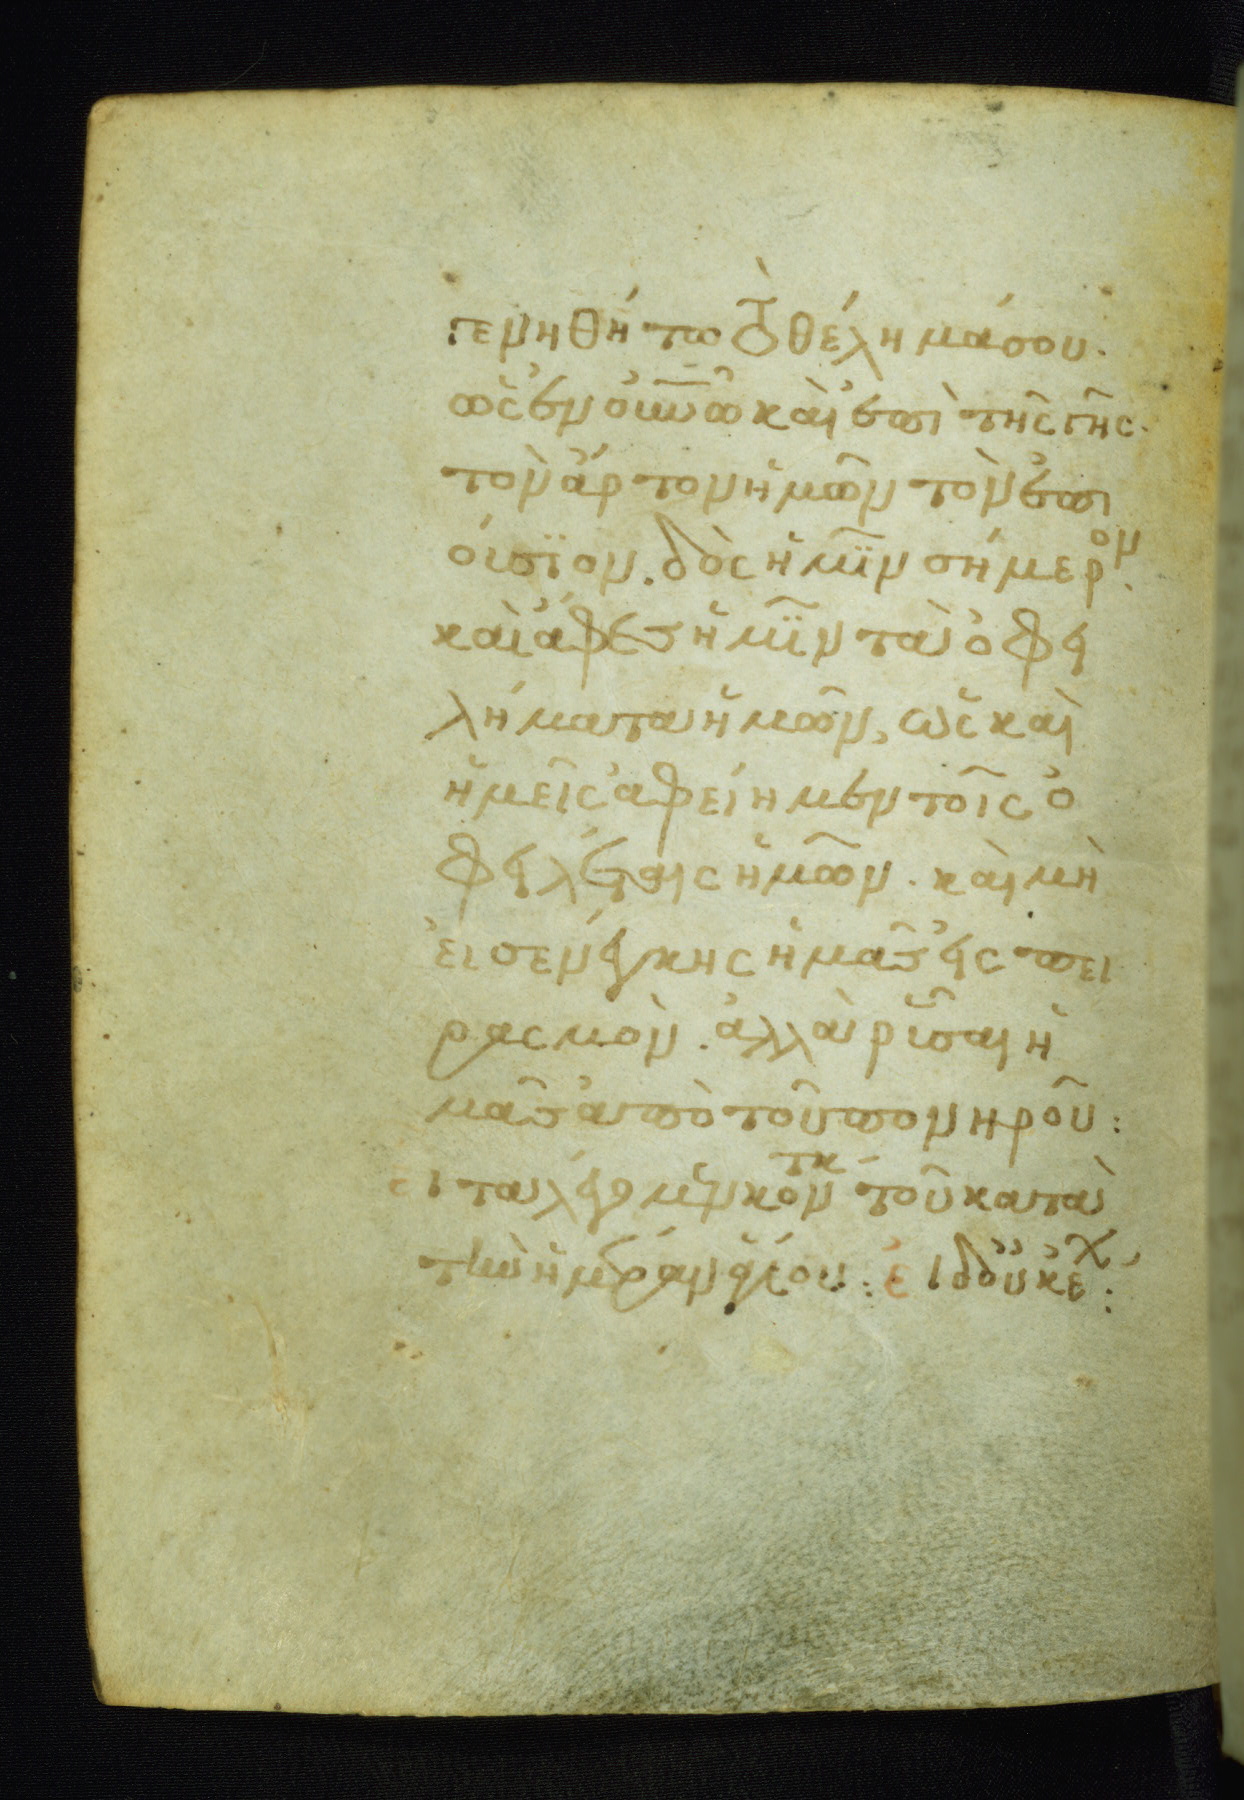 γενηθήτω τὸ θέλημά σου·
ὡς ἐν οὐνῶ καὶ ἐπὶ τῆς γῆς·
τὸν ἄρτον ἡμῶν τὸν ἐπι
ούσϊον. δὸς ἡμῖν σήμερον.
καὶ ἄφες ἡμῖν τὰ ὀφει
λήματα ἡμῶν, ὡς καὶ
ἡμεῖς ἀφείημεν τοῖς ὀ
φειλέταις ἡμῶν. καὶ μὴ
εἰσενέγκης ἡμᾶς εἰς πει
ρασμὸν. ἀλλὰ ῥῦσαι ἡ
μᾶς ἀπὸ τοῦ πονηροῦ:
εἶτα λέγομεν κοντκ τοῦ κατὰ
τὴν ἡμέραν ἁγίου: εἰ δ οὐκ ἔχ: